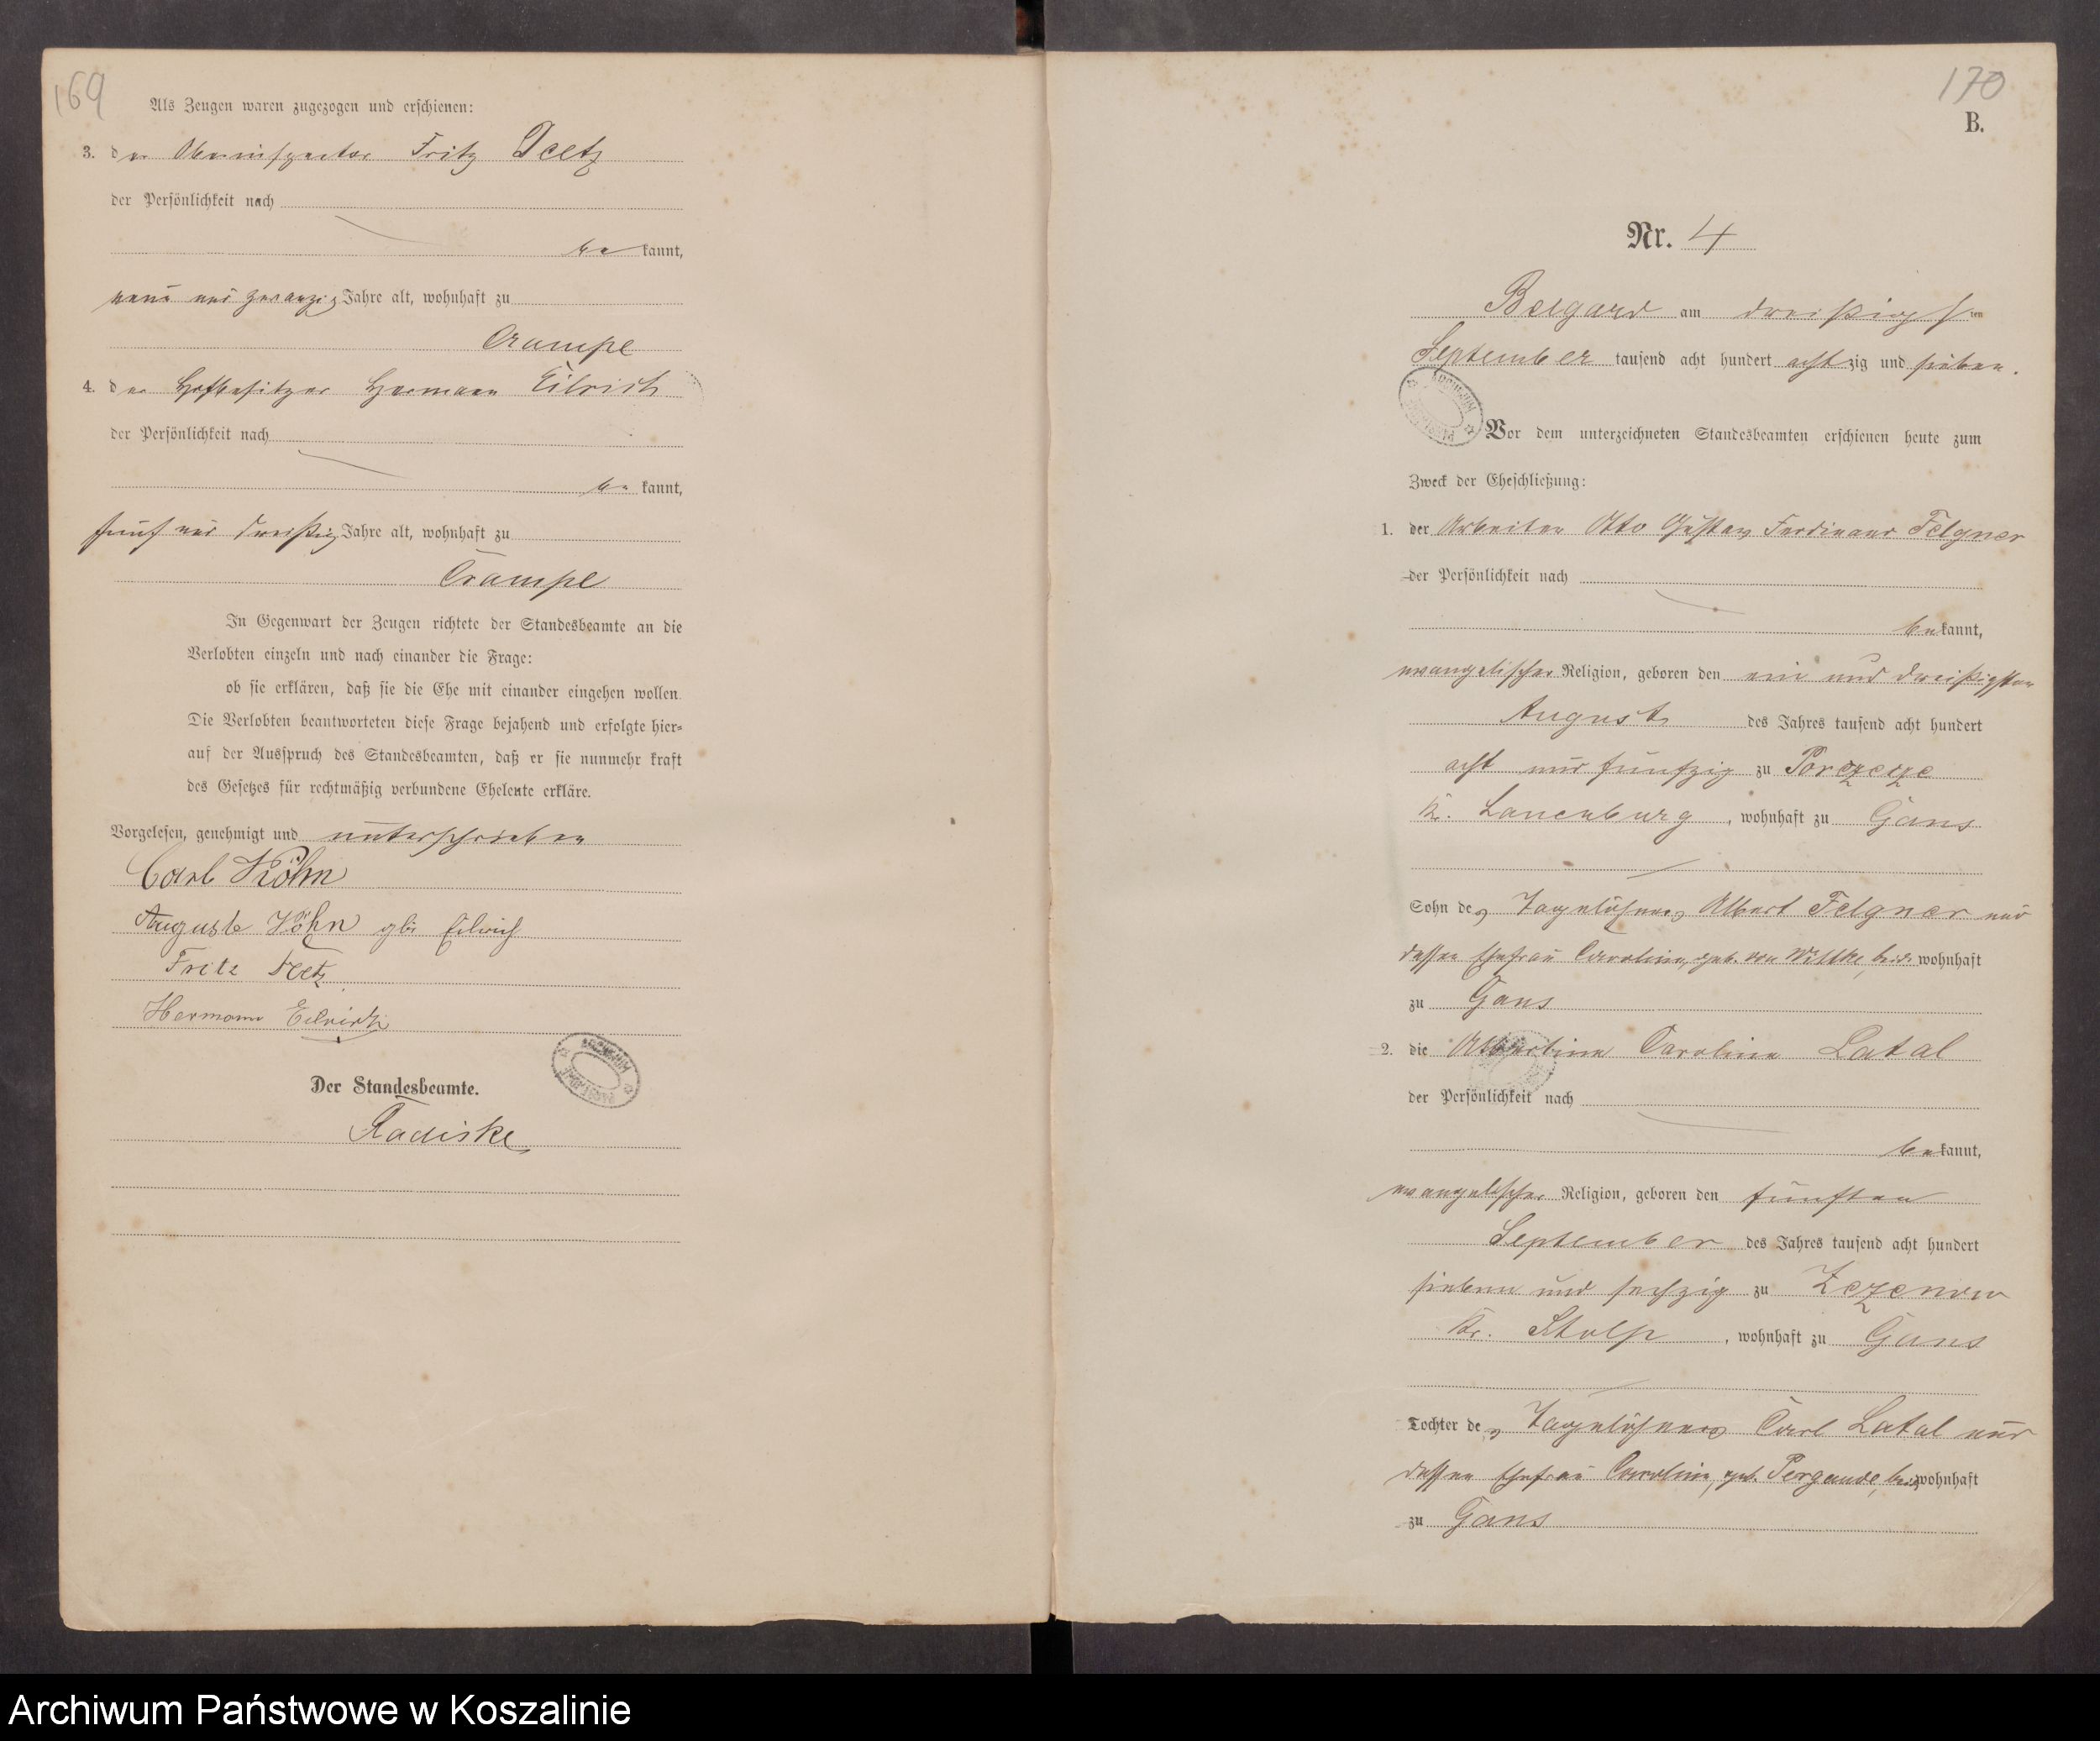 169
Als Zeugen waren zugezogen und erschienen:
3. der Oberinspector Fritz Deetz
der Persönlichkeit nach
bekannt,
neun und zwanzig Jahre alt, wohnhaft zu
Crampe
4. der Hofbesitzer Hermann Eilrich
der Persönlichkeit nach
bekannt,
fünf und dreißig Jahre alt, wohnhaft zu
Crampe
In Gegenwart der Zeugen richtete der Standesbeamte an die
Verlobten einzeln und nach einander die Frage:
ob sie erklären, daß sie die Ehe mit einander eingehen wollen.
Die Verlobten beantworteten diese Frage bejahend und erfolgte hier=
auf der Ausspruch des Standesbeamten, daß er sie nunmehr kraft
des Gesetzes für rechtmäßig verbundene Eheleute erkläre.
Vorgelesen, genehmigt und unterschrieben
Carl Köhn
Auguste Köhn gb. Eilrich
Fritz Deetz
Hermann Eilrich
Der Standesbeamte.
Radiske
170
B.
Nr. 4
Belgard am dreißigsten
September tausend acht hundert achtzig und sieben.
Vor dem unterzeichneten Standesbeamten erschienen heute zum
Zweck der Eheschließung:
1. der Arbeiter Otto Gustav Ferdinand Felgner
der Persönlichkeit nach
bekannt,
evangelischer Religion, geboren den ein und dreißigsten
August des Jahres tausend acht hundert
acht und fünfzig zu
Kr. Lauenburg, wohnhaft zu Gans
Sohn des Tagelöhners Albert Felgner und
dessen Ehefrau Caroline, geb. von Wittke, beide wohnhaft
zu Gans
2. die Albertine Caroline Latal
der Persönlichkeit nach
bekannt,
evangelischer Religion, geboren den fünften
September des Jahres tausend acht hundert
sieben und sechzig zu Zezenow
Kr. Stolp, wohnhaft zu Gans
Tochter des Tagelöhners Carl Latal und
dessen Ehefrau Caroline, geb. Pergande, beide wohnhaft
zu Gans
Archiwum Państwowe w Koszalinie